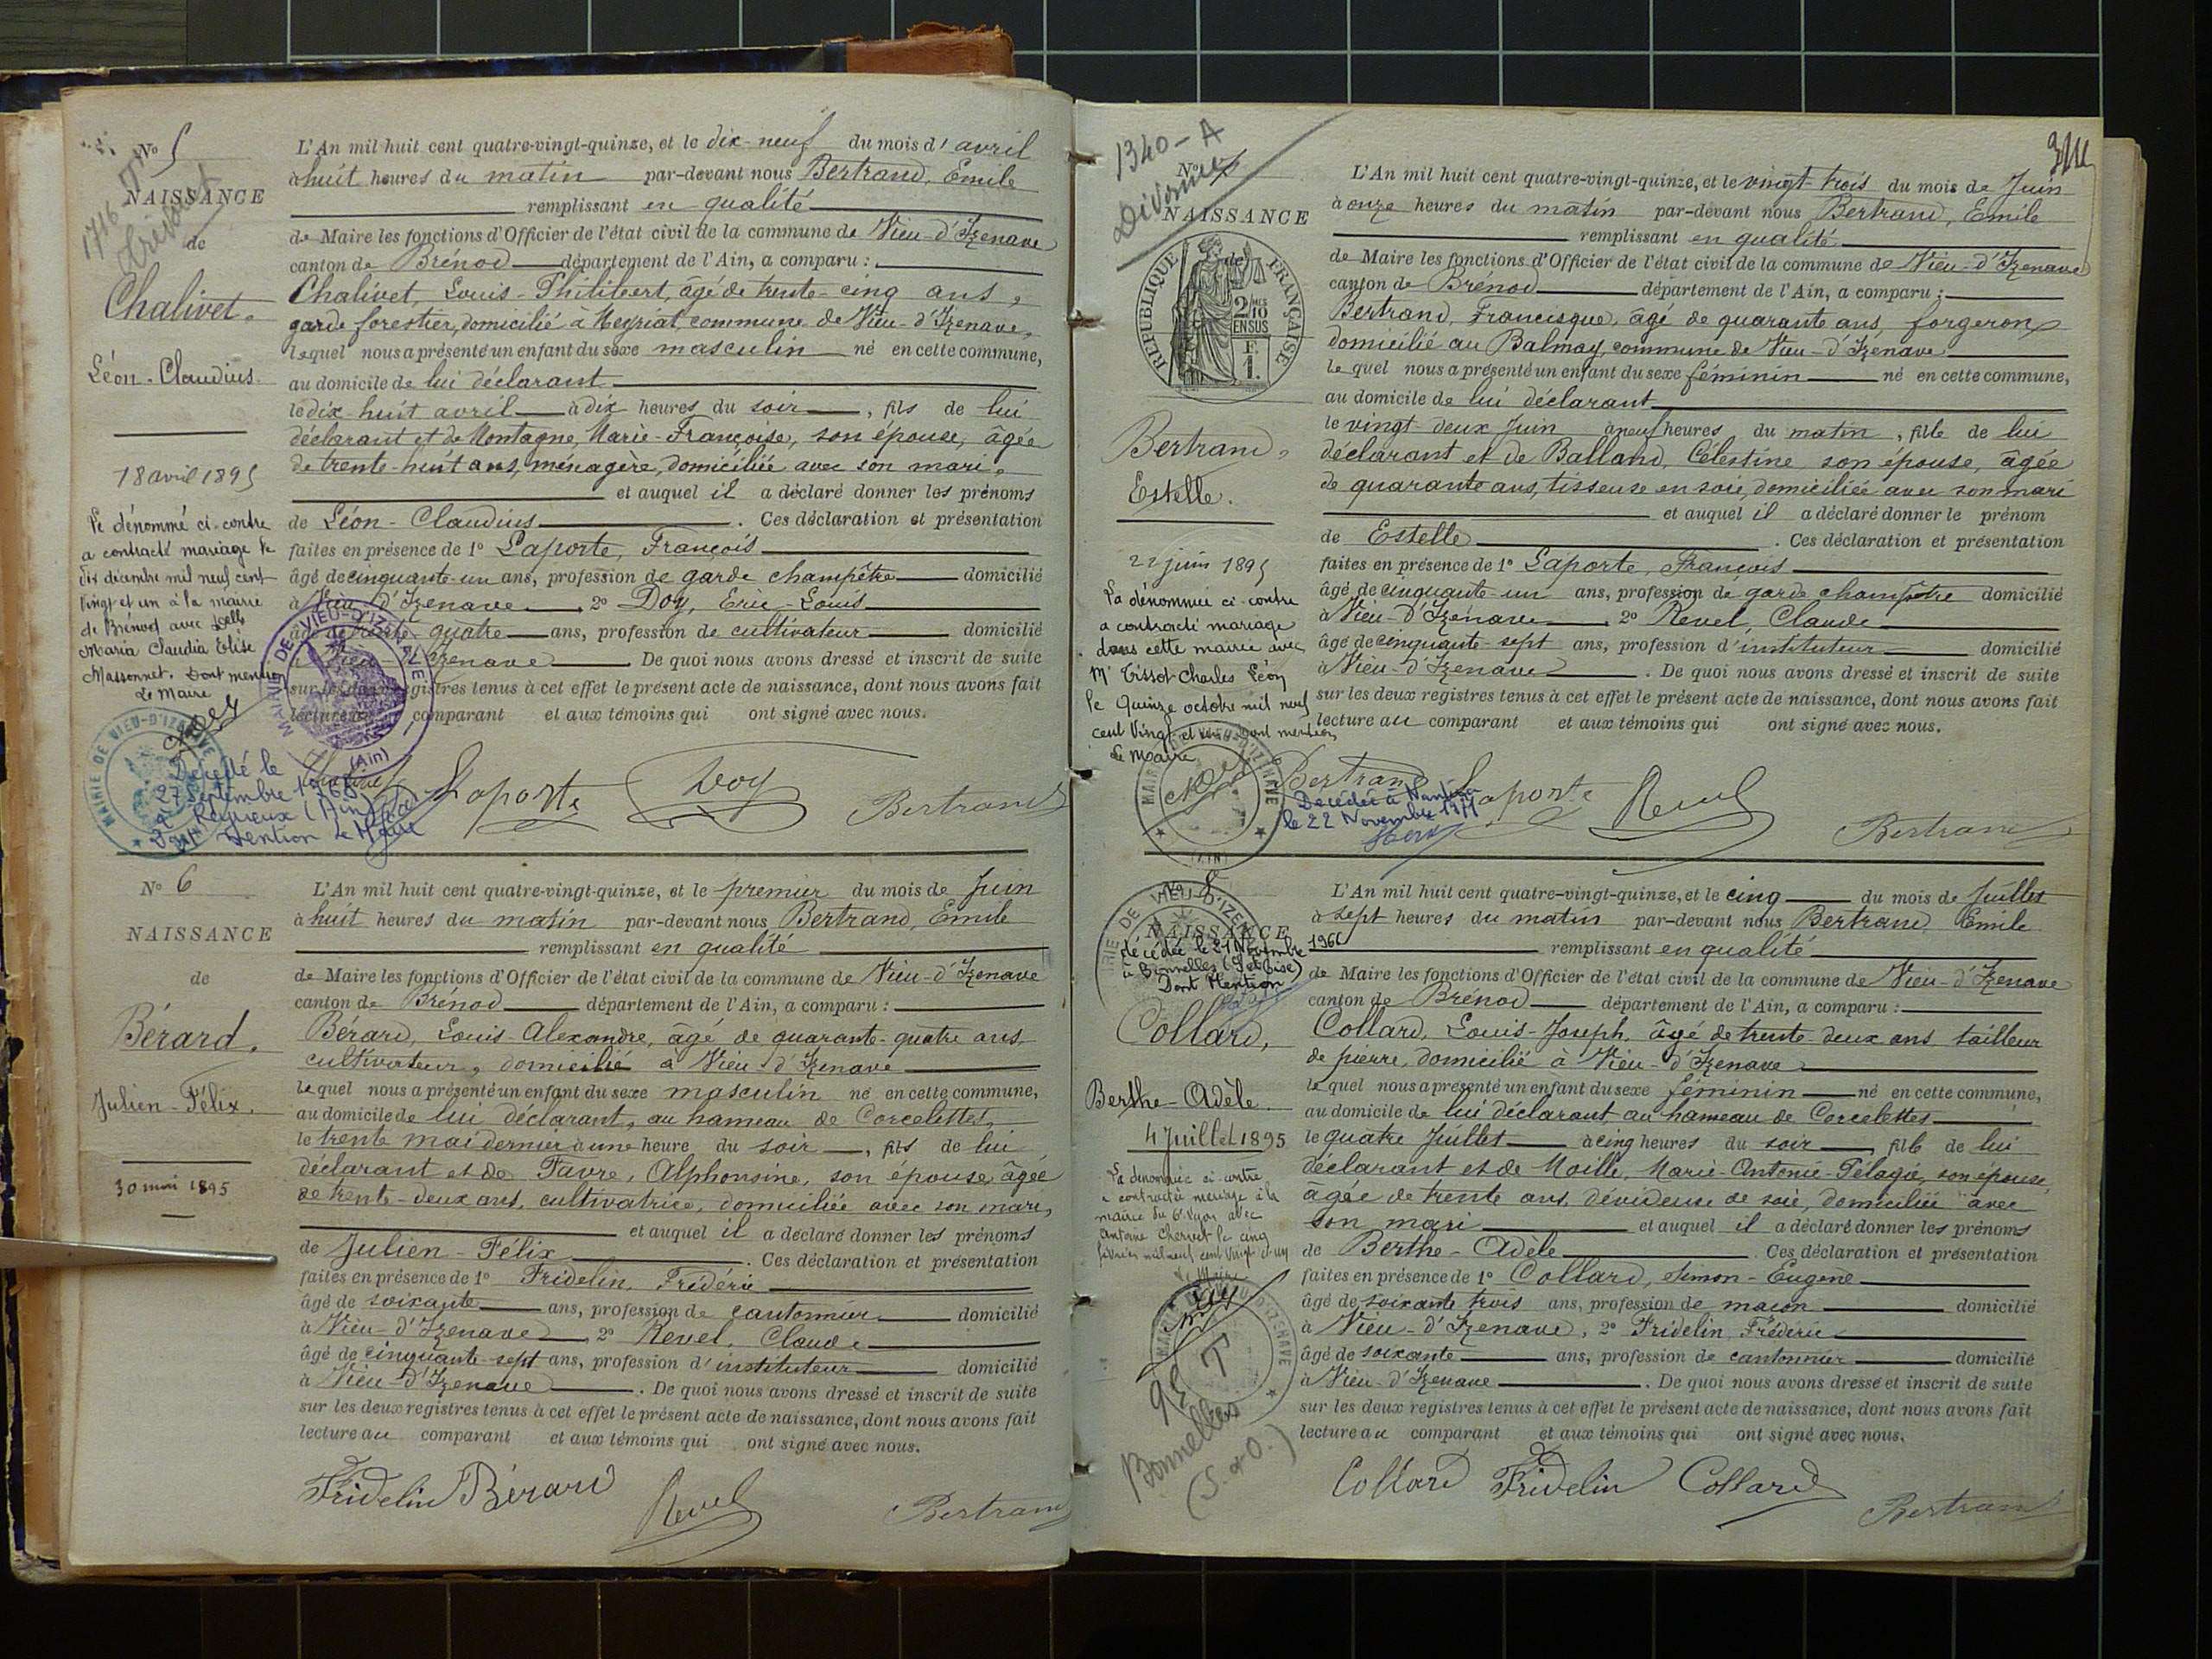 N° 5
NAISSANCE
de
Chalivet.
Léon-Claudius.
18 avril 1895
Le dénommé ci-contre
a contracté mariage le
dix décembre mil neuf cent
vingt et un à la mairie
de Brénod avec Delle
Maria Claudia Elise
Massonnet. Dont mention
Le Maire
MAIRIE DE VIEU-D'IZENAVE
(Ain)
MAIRIE DE VIEU-D'IZENAVE
Décédé le
27 septembre
à (Ain)
Dont Mention le Maire
L'An mil huit cent quatre-vingt-quinze, et le dix-neuf du mois d'avril
à huit heures du matin par-devant nous Bertrand, Emile
remplissant en qualité
de Maire les fonctions d'Officier de l'état civil de la commune de Vieu-d'Izenave
canton de Brénod département de l'Ain, a comparu :
Chalivet, Louis-Philibert, âgé de trente-cinq ans,
garde forestier, domicilié à Meyriat, commune de Vieu-d'Izenave,
lequel nous a présenté un enfant du sexe masculin né en cette commune,
au domicile de lui déclarant
le dix-huit avril à dix heures du soir, fils de lui
déclarant et de Montagne, Marie-Françoise, son épouse, âgée
de trente-huit ans, ménagère, domiciliée avec son mari,
et auquel il a déclaré donner les prénoms
de Léon-Claudius. Ces déclaration et présentation
faites en présence de 1° Laporte, François
âgé de cinquante-un ans, profession de garde champêtre domicilié
à Vieu-d'Izenave, 2° Doy, Eric-Louis
âgé de trente quatre ans, profession de cultivateur domicilié
à Vieu-d'Izenave De quoi nous avons dressé et inscrit de suite
sur les deux registres tenus à cet effet le présent acte de naissance, dont nous avons fait
lecture au comparant et aux témoins qui ont signé avec nous.
Laporte Doy Bertrand
N° 6
NAISSANCE
de
Bérard.
Julien-Félix.
30 mai 1895
L'An mil huit cent quatre-vingt-quinze, et le premier du mois de Juin
à huit heures du matin par-devant nous Bertrand, Emile
remplissant en qualité
de Maire les fonctions d'Officier de l'état civil de la commune de Vieu-d'Izenave
canton de Brénod département de l'Ain, a comparu :
Bérard, Louis-Alexandre, âgé de quarante-quatre ans,
cultivateur, domicilié à Vieu-d'Izenave
lequel nous a présenté un enfant du sexe masculin né en cette commune,
au domicile de lui déclarant, au hameau de Corcelettes,
le trente mai dernier à une heure du soir, fils de lui
déclarant et de Favre, Alphonsine, son épouse âgée
de trente-deux ans, cultivatrice, domiciliée avec son mari,
et auquel il a déclaré donner les prénoms
de Julien-Félix. Ces déclaration et présentation
faites en présence de 1° Fridelin, Frédéric
âgé de soixante ans, profession de cantonnier domicilié
à Vieu-d'Izenave, 2° Revel, Claude
âgé de cinquante-sept ans, profession d'instituteur domicilié
à Vieu-d'Izenave. De quoi nous avons dressé et inscrit de suite
sur les deux registres tenus à cet effet le présent acte de naissance, dont nous avons fait
lecture au comparant et aux témoins qui ont signé avec nous.
Fridelin Bérard Revel Bertrand
1340-A
Divonne
N° 7
NAISSANCE
de
RÉPUBLIQUE FRANÇAISE
2/10
EN SUS
E.
1.
Bertrand,
Estelle.
22 juin 1895
La dénommée ci-contre
a contracté mariage
dans cette mairie avec
Mr Tissot Charles Léon
le quinze octobre mil neuf
cent vingt et un dont mention
Le Maire
MAIRIE DE VIEU-D'IZENAVE
(AIN)
L'An mil huit cent quatre-vingt-quinze, et le vingt-trois du mois de Juin
à onze heures du matin par-devant nous Bertrand, Emile
remplissant en qualité
de Maire les fonctions d'Officier de l'état civil de la commune de Vieu-d'Izenave
canton de Brénod département de l'Ain, a comparu :
Bertrand, Francisque, âgé de quarante ans, forgeron,
domicilié au Balmay, commune de Vieu-d'Izenave
lequel nous a présenté un enfant du sexe féminin né en cette commune,
au domicile de lui déclarant
le vingt deux Juin à neuf heures du matin, fille de lui
déclarant et de Balland, Célestine son épouse, âgée
de quarante ans, tisseuse en soie, domiciliée avec son mari
et auquel il a déclaré donner le prénom
de Estelle. Ces déclaration et présentation
faites en présence de 1° Laporte, François
âgé de cinquante-un ans, profession de garde champêtre domicilié
à Vieu-d'Izenave, 2° Revel, Claude
âgé de cinquante-sept ans, profession d'instituteur domicilié
à Vieu-d'Izenave. De quoi nous avons dressé et inscrit de suite
sur les deux registres tenus à cet effet le présent acte de naissance, dont nous avons fait
lecture au comparant et aux témoins qui ont signé avec nous.
Bertrand Laporte Revel Bertrand
Décédée à Nantua
le 22 Novembre 1971
N° 8
NAISSANCE
MAIRIE DE VIEU-D'IZENAVE
décédée le 21 Novembre 1966
à Bonnelles (S et Oise)
Dont Mention
Collard,
Berthe-Adèle
4 Juillet 1895
La dénommée ci-contre
a contracté mariage à la
mairie du 6e Lyon avec
Antoine Chervet le cinq
février mil neuf cent vingt et un
Le Maire
MAIRIE DE VIEU-D'IZENAVE
Bonnelles
(S. & O.)
L'An mil huit cent quatre-vingt-quinze, et le cinq du mois de Juillet
à sept heures du matin par-devant nous Bertrand, Emile
remplissant en qualité
de Maire les fonctions d'Officier de l'état civil de la commune de Vieu-d'Izenave
canton de Brénod département de l'Ain, a comparu :
Collard, Louis-Joseph, âgé de trente-deux ans, tailleur
de pierre, domicilié à Vieu-d'Izenave
lequel nous a présenté un enfant du sexe féminin né en cette commune,
au domicile de lui déclarant au hameau de Corcelettes
le quatre Juillet à cinq heures du soir, fille de lui
déclarant et de Moille, Marie-Antonie-Pélagie, son épouse,
âgée de trente ans, dévideuse de soie, domiciliée avec
son mari et auquel il a déclaré donner les prénoms
de Berthe-Adèle. Ces déclaration et présentation
faites en présence de 1° Collard, Simon-Eugène
âgé de soixante trois ans, profession de maçon domicilié
à Vieu-d'Izenave, 2° Fridelin Frédéric
âgé de soixante ans, profession de cantonnier domicilié
à Vieu-d'Izenave. De quoi nous avons dressé et inscrit de suite
sur les deux registres tenus à cet effet le présent acte de naissance, dont nous avons fait
lecture au comparant et aux témoins qui ont signé avec nous.
Collard Fridelin Collard Bertrand